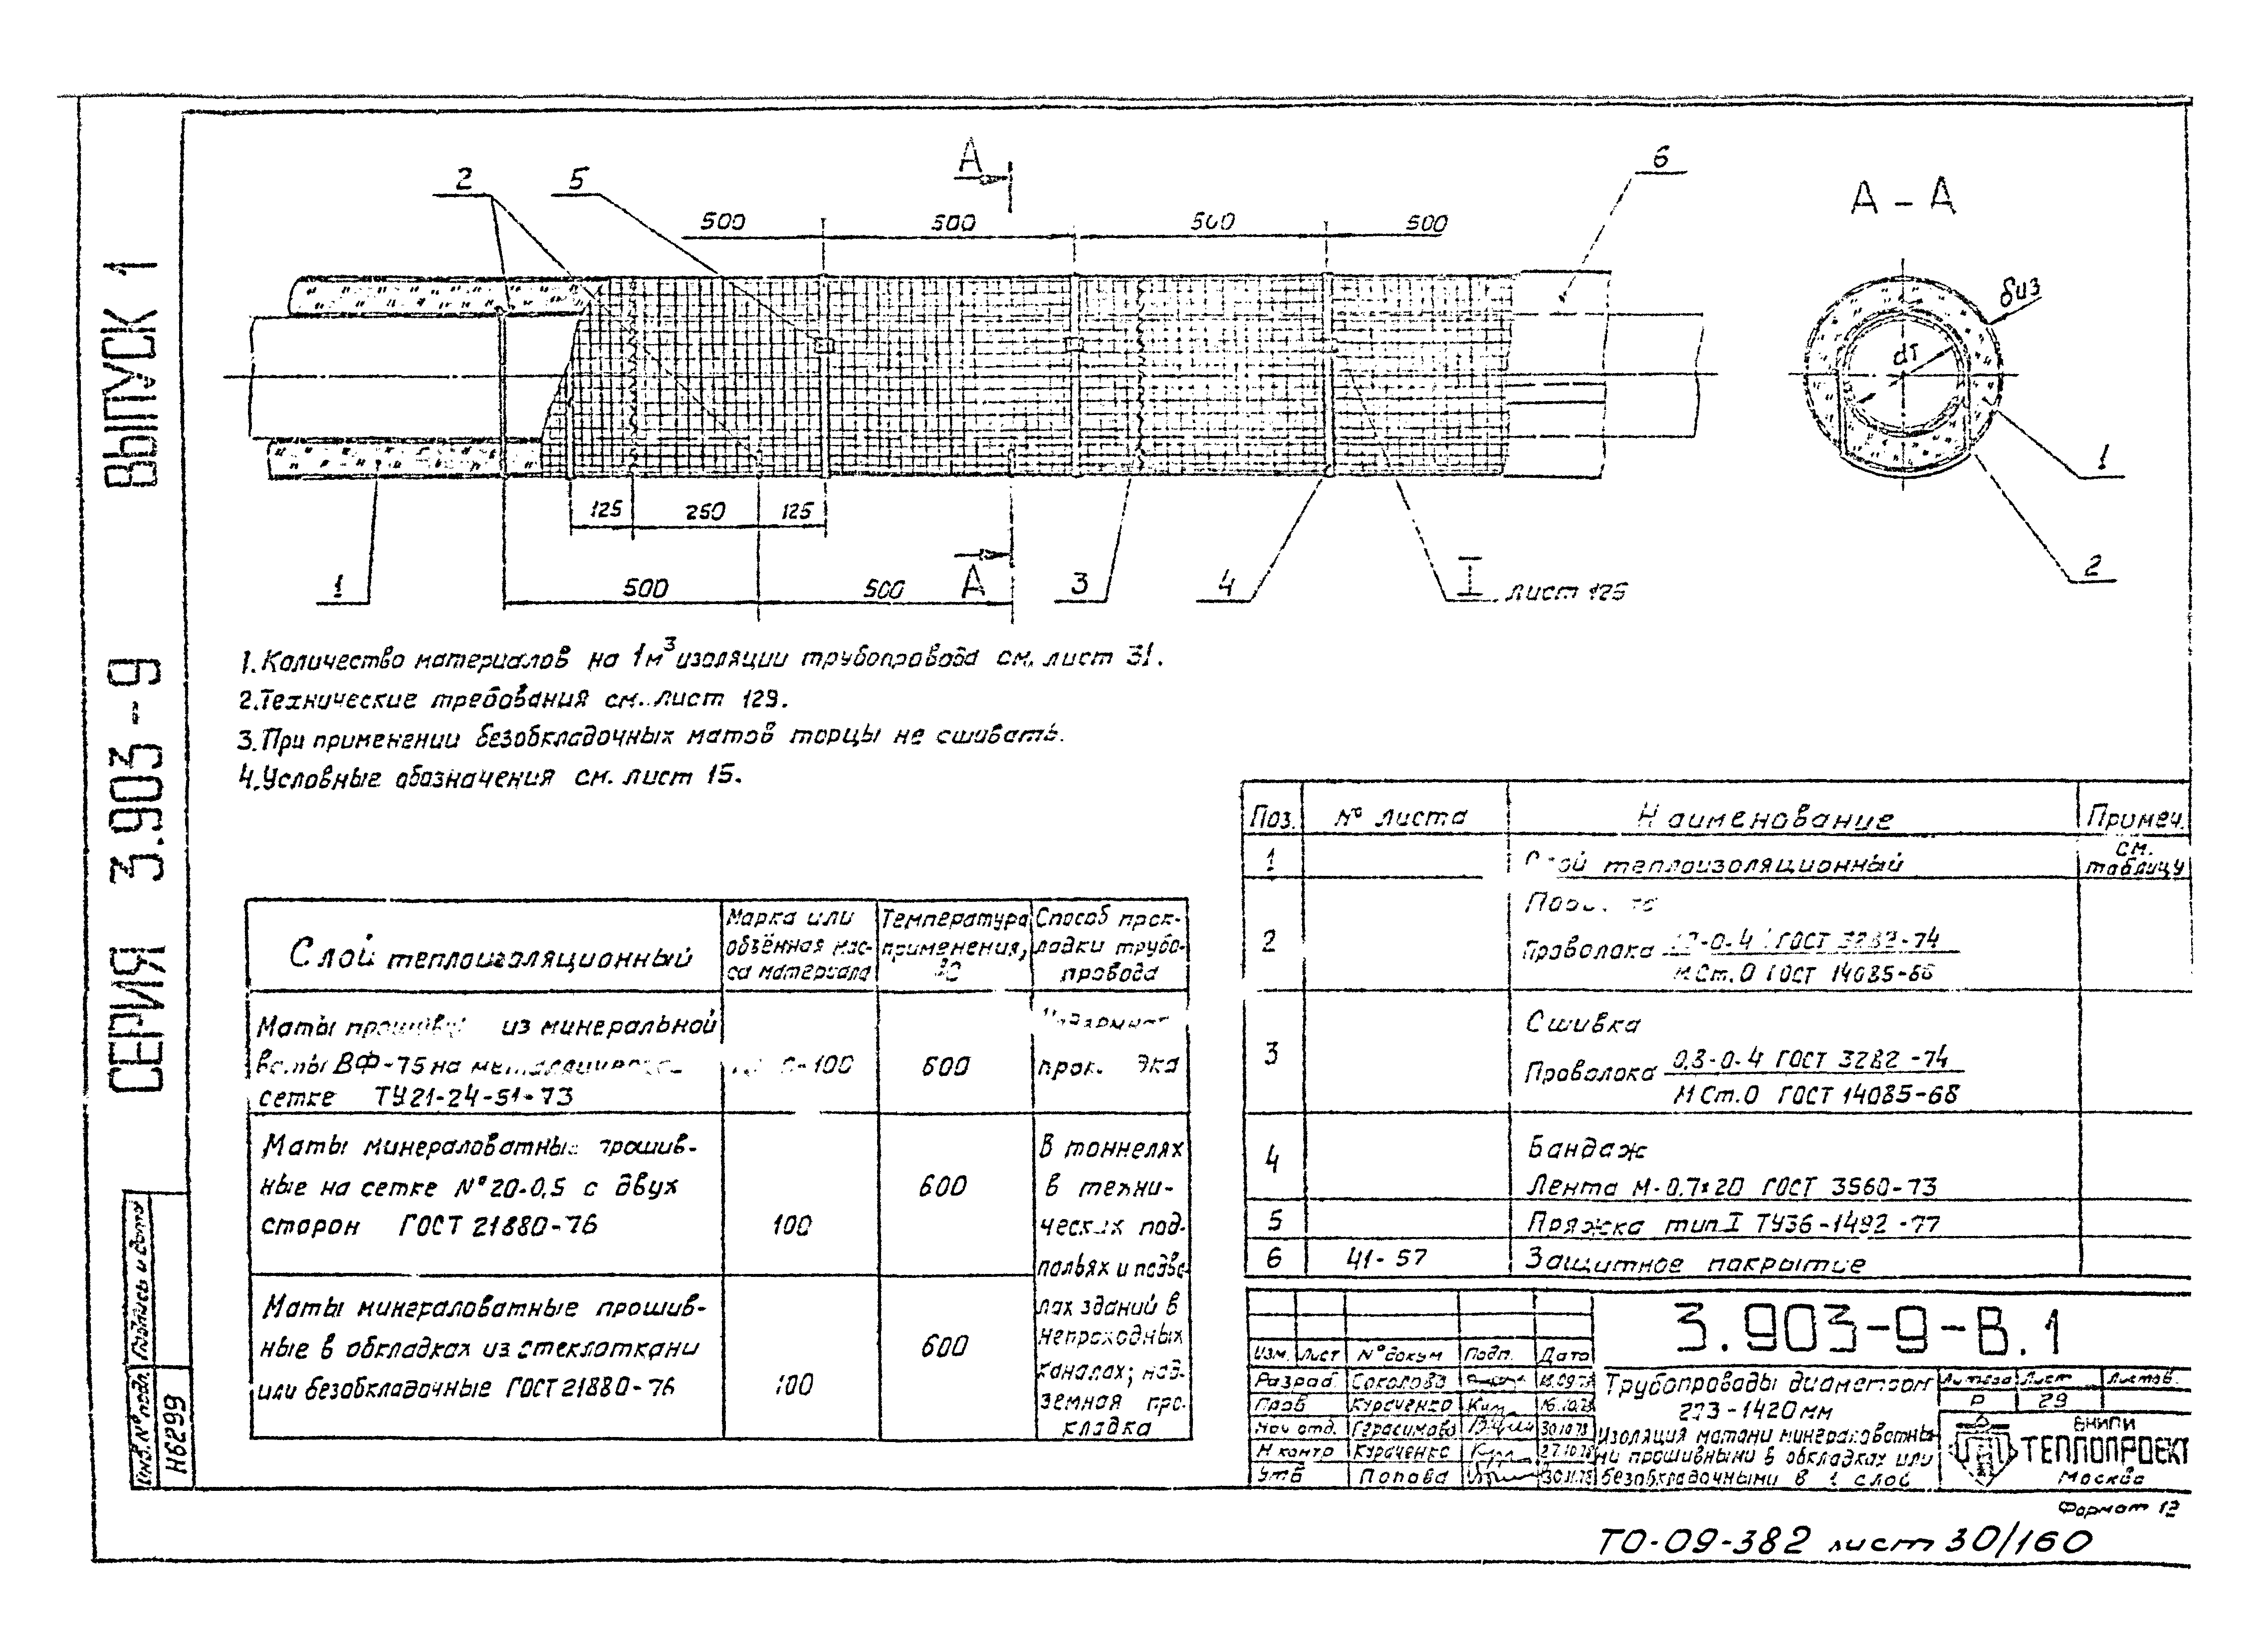 СЕРИЯ 3.903-9 ВЫПУСК 1
А
А-А
2
5
6
500
500
500
500
δиз
dт
1
2
125
250
125
500
500
А
1
3
4
I
лист 125
1. Количество материалов на 1м³ изоляции трубопровода см. лист 31.
2. Технические требования см. лист 129.
3. При применении безобкладочных матов торцы не сшивать.
4. Условные обозначения см. лист 15.
Слой теплоизоляционный
Марка или
объёмная мас-
са материала
Температура
применения,
°С
Способ прок-
ладки трубо-
провода
Маты из минеральной
ваты ВФ-75 на
сетке ТУ21-24-51-73
-100
600
Маты минераловатные прошив-
ные на сетке №20-0,5 с двух
сторон ГОСТ 21880-76
100
600
Маты минераловатные прошив-
ные в обкладках из стеклоткани
или безобкладочные ГОСТ 21880-76
100
600
В тоннелях
в техни-
ческих под-
польях и подва-
лах зданий в
непроходных
каналах; над-
земная про-
кладка
Поз.
№ листа
Наименование
Примеч.
1
Слой теплоизоляционный
см.
таблицу
2
Проволока
-0-4 ГОСТ 3282-74
МСт.0 ГОСТ 14085-68
3
Сшивка
Проволока
0,8-0-4 ГОСТ 3282-74
МСт.0 ГОСТ 14085-68
4
Бандаж
Лента М-0,7х20 ГОСТ 3560-73
5
Пряжка тип I ТУ36-1492-77
6
41-57
Защитное покрытие
3.903-9-В.1
Изм. Лист № докум Подп. Дата
Разраб. Соколова 18.09.78
Пров Кураченко 16.10.78
Нач отд. Герасимова 30.10.78
Н контр Кураченко 27.10.78
Утв Попова 30.11.78
Трубопроводы диаметром
273-1420мм
Изоляция матами минераловатны-
ми прошивными в обкладках или
безобкладочными в 1 слой
Литера Лист Листов.
Р 29
ВНИПИ
ТЕПЛОПРОЕКТ
Москва
Подпись и дата
Инв.№подл.
Н6299
Формат 12
ТО-09-382 лист 30/160